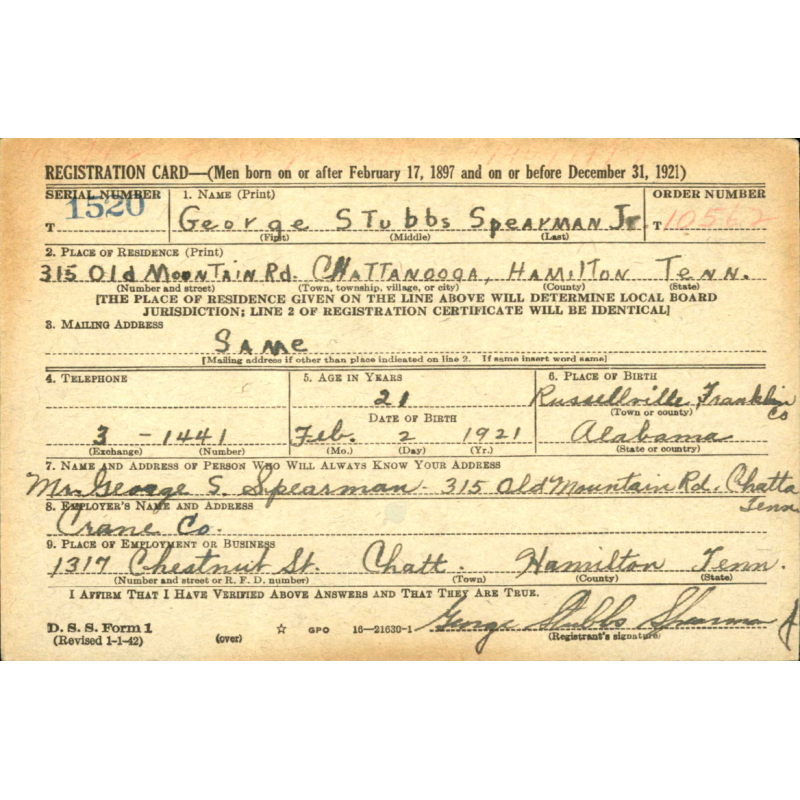 REGISTRATION CARD—(Men born on or after February 17, 1897 and on or before December 31, 1921)
SERIAL NUMBER 1. NAME (Print) ORDER NUMBER
T 1520 George Stubbs Spearman Jr. T 10562
(First) (Middle) (Last)
2. PLACE OF RESIDENCE (Print)
315 Old Mountain Rd. Chattanooga, Hamilton Tenn.
(Number and street) (Town, township, village, or city) (County) (State)
[THE PLACE OF RESIDENCE GIVEN ON THE LINE ABOVE WILL DETERMINE LOCAL BOARD
JURISDICTION; LINE 2 OF REGISTRATION CERTIFICATE WILL BE IDENTICAL]
3. MAILING ADDRESS
Same
[Mailing address if other than place indicated on line 2. If same insert word same]
4. TELEPHONE 5. AGE IN YEARS 6. PLACE OF BIRTH
21 Russellville, Franklin Co
(Town or county)
DATE OF BIRTH
3-1441 Feb. 2 1921 Alabama
(Exchange) (Number) (Mo.) (Day) (Yr.) (State or country)
7. NAME AND ADDRESS OF PERSON WHO WILL ALWAYS KNOW YOUR ADDRESS
Mr. George S. Spearman - 315 Old Mountain Rd. Chatta Tenn
8. EMPLOYER'S NAME AND ADDRESS
Crane Co.
9. PLACE OF EMPLOYMENT OR BUSINESS
1317 Chestnut St. Chatt. Hamilton Tenn.
(Number and street or R. F. D. number) (Town) (County) (State)
I AFFIRM THAT I HAVE VERIFIED ABOVE ANSWERS AND THAT THEY ARE TRUE.
George Stubbs Spearman Jr
D. S. S. Form 1
(Revised 1-1-42) (over) ☆ GPO 16—21630-1 (Registrant's signature)